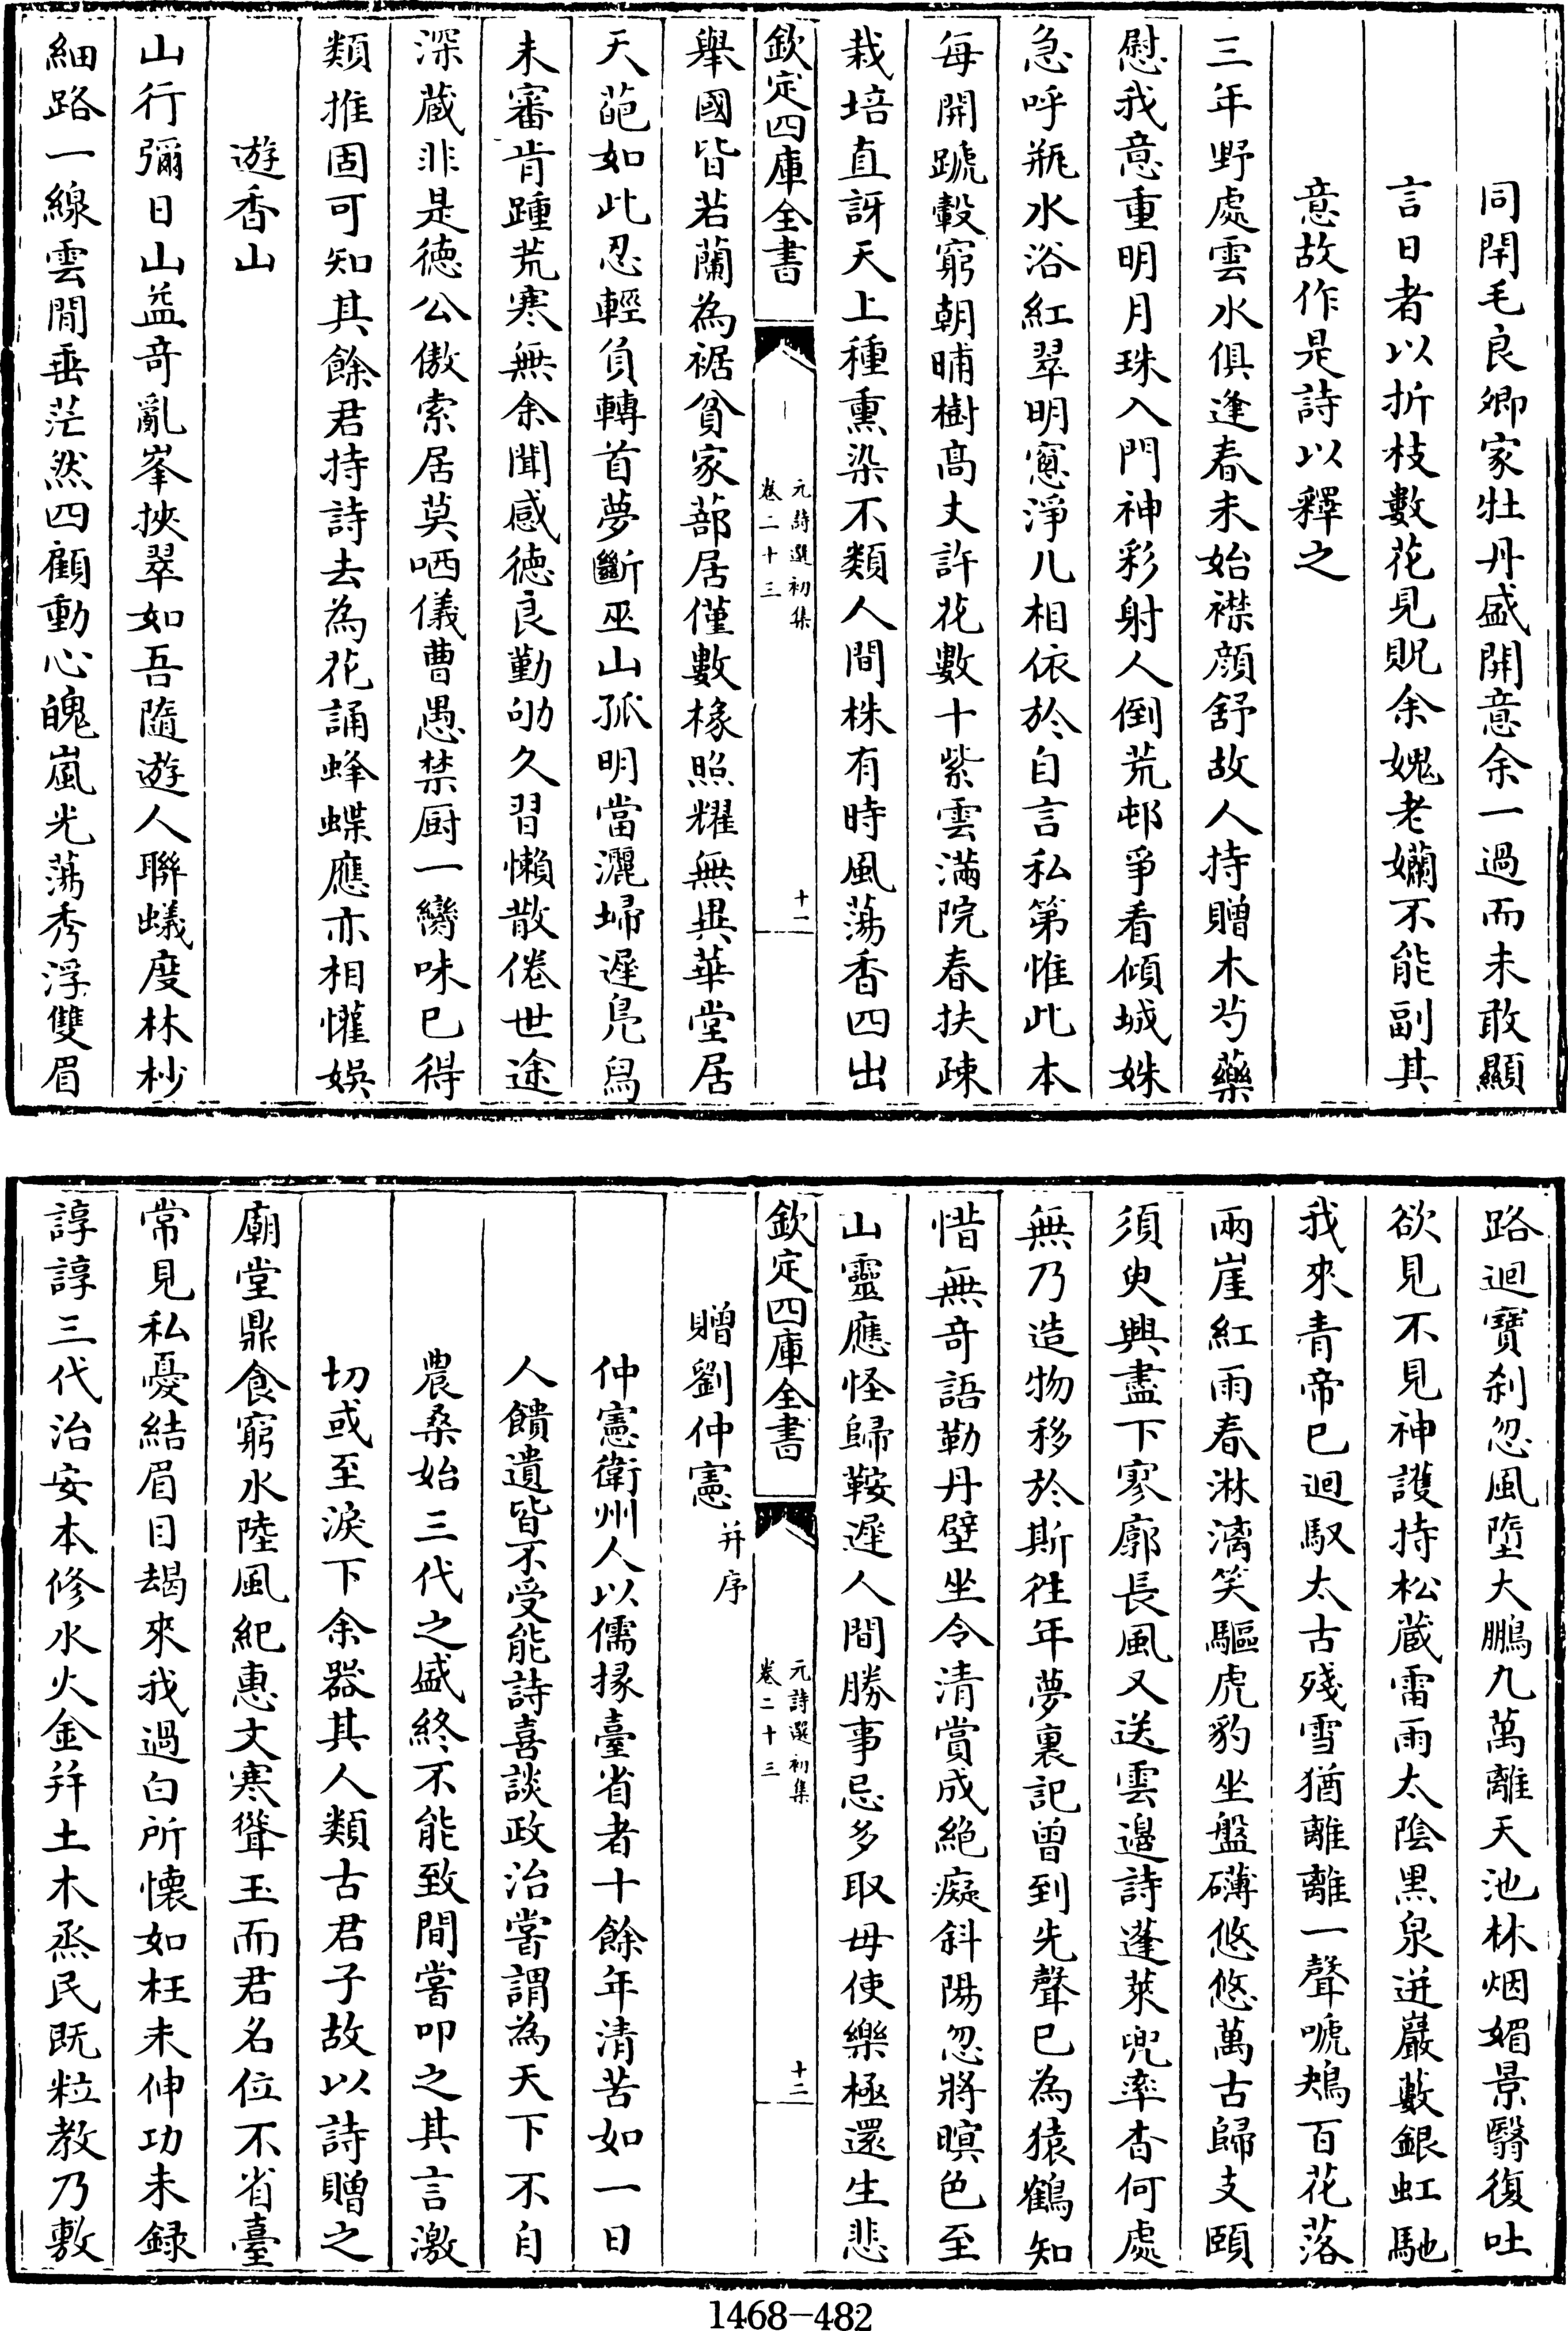 同閈毛良卿家牡丹盛開意余一過而未敢顯
言日者以折枝數花見貺余媿老嬾不能副其
意故作是詩以釋之
三年野處雲水俱逢春未始襟顔舒故人持贈木芍藥
慰我意重明月珠入門神彩射人倒荒邨爭看傾城姝
急呼瓶水浴紅翠明窓淨几相依於自言私第惟此本
每開蹏轂窮朝晡樹髙丈許花數十紫雲滿院春扶疎
栽培直訝天上種熏染不類人間株有時風蕩香四出
欽定四庫全書
元詩選初集
卷二十三
十一
舉國皆若蘭為裾貧家蔀居僅數椽照耀無異華堂居
天葩如此忍輕負轉首夢斷巫山孤明當灑埽遲鳧舄
未審肯踵荒寒無余聞感徳良勤劬久習懶散倦世途
深蔵非是徳公傲索居莫哂儀曹愚禁厨一臠味已得
類推固可知其餘君持詩去為花誦蜂蝶應亦相懽娛
遊香山
山行彌日山益竒亂峯挾翠如吾隨遊人聯蟻度林杪
細路一線雲間垂茫然四顧動心魄嵐光蕩秀浮雙眉
路迴寶刹忽風墮大鵬九萬離天池林烟媚景翳復吐
欲見不見神護持松蔵雷雨太陰黑泉迸巖藪銀虹馳
我來青帝已迴馭太古殘雪猶離離一聲嗁鴂百花落
兩崖紅雨春淋漓笑驅虎豹坐盤礴悠悠萬古歸支頤
須臾興盡下寥廓長風又送雲邉詩蓬萊兜率杳何處
無乃造物移於斯徃年夢裏記曽到先聲已為猿鶴知
惜無竒語勒丹壁坐令清賞成絶癡斜陽忽將暝色至
山靈應怪歸鞍遲人間勝事忌多取毋使樂極還生悲
欽定四庫全書
元詩選初集
卷二十三
十二
贈劉仲憲并序
仲憲衛州人以儒掾臺省者十餘年清苦如一日
人饋遺皆不受能詩喜談政治嘗謂為天下不自
農桑始三代之盛終不能致間嘗叩之其言激
切或至淚下余器其人類古君子故以詩贈之
廟堂鼎食窮水陸風紀惠文寒聳玉而君名位不省臺
常見私憂結眉目朅來我過白所懷如枉未伸功未録
諄諄三代治安本修水火金并土木烝民既粒教乃敷
1468-482